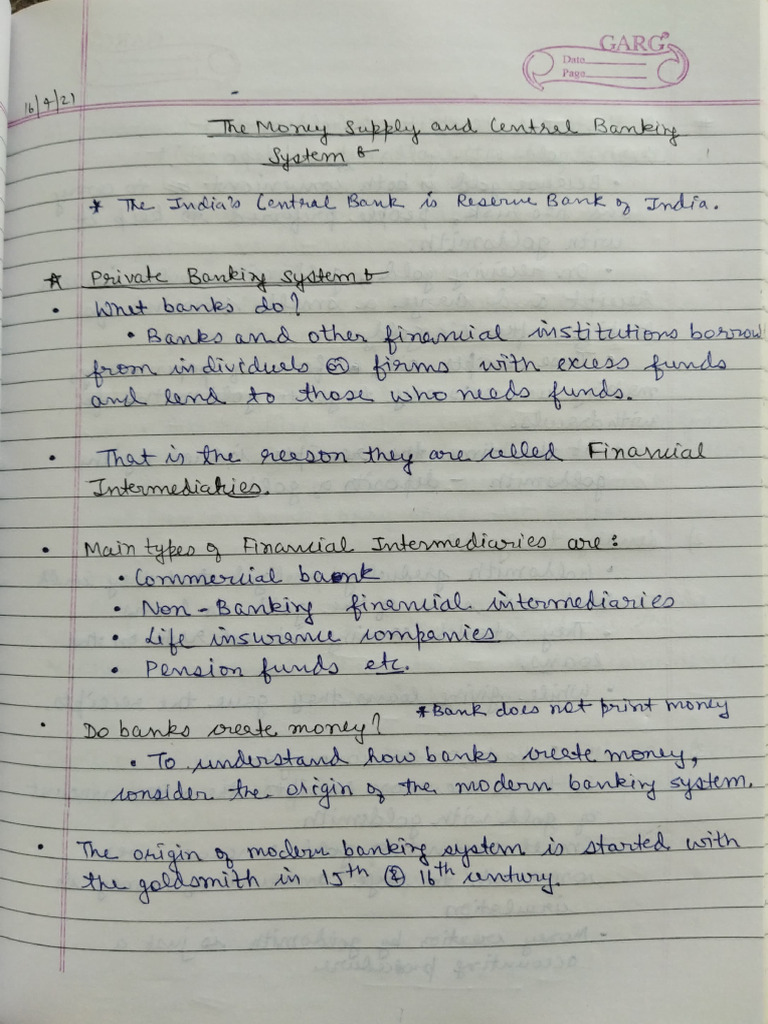 GARG
Date
Page
16/4/21
The Money Supply and Central Banking
System :-
* The India's Central Bank is Reserve Bank of India.
* Private Banking System :-
• What banks do?
• Banks and other financial institutions borrow
from individuals or firms with excess funds
and lend to those who needs funds.
• That is the reason they are called Financial
Intermediaries.
• Main types of Financial Intermediaries are :
• Commercial bank
• Non-Banking financial intermediaries
• Life insurance companies
• Pension funds etc.
• Do banks create money? *Bank does not print money
• To understand how banks create money,
consider the origin of the modern banking system.
• The origin of modern banking system is started with
the goldsmith in 15th & 16th century.